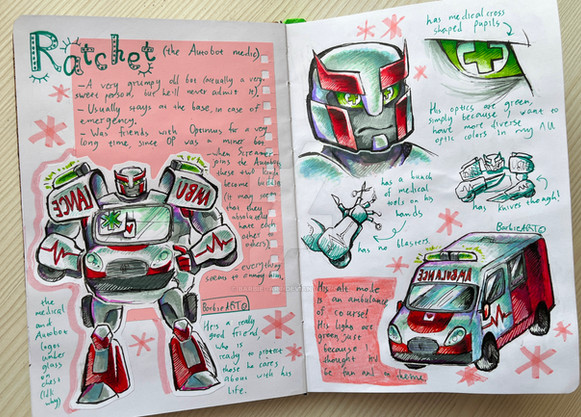 Ratchet
(the Autobot medic)
- A very grumpy old bot (actually a very
sweet person, but he'll never admit it).
- Usually stays at the base, in case of
emergency.
- Was friends with Optimus for a very
long time, since OP was a miner bot
- when Screamer
joins the Autobots,
these two kinda
become buddies
(it may seem
that they
absolutely
hate each
other to
others)
- everything
seems to annoy him.
AMBU
LANCE
the
medical
and
Autobot
logos
under
glass
on
chest
(idk
why)
BarbieART©
He's a really
good friend,
who is
ready to protect
those he cares
about with his
life.
has medical cross
shaped pupils
His optics are green,
simply because I want to
have more diverse
optic colors in my AU
has a bunch
of medical
tools on his
hands
has no blasters
has knives though!
BarbieART©
AMBULANCE
His alt mode
is an ambulance
of course!
His lights are
green just
because I
thought it'd
be fun and on theme